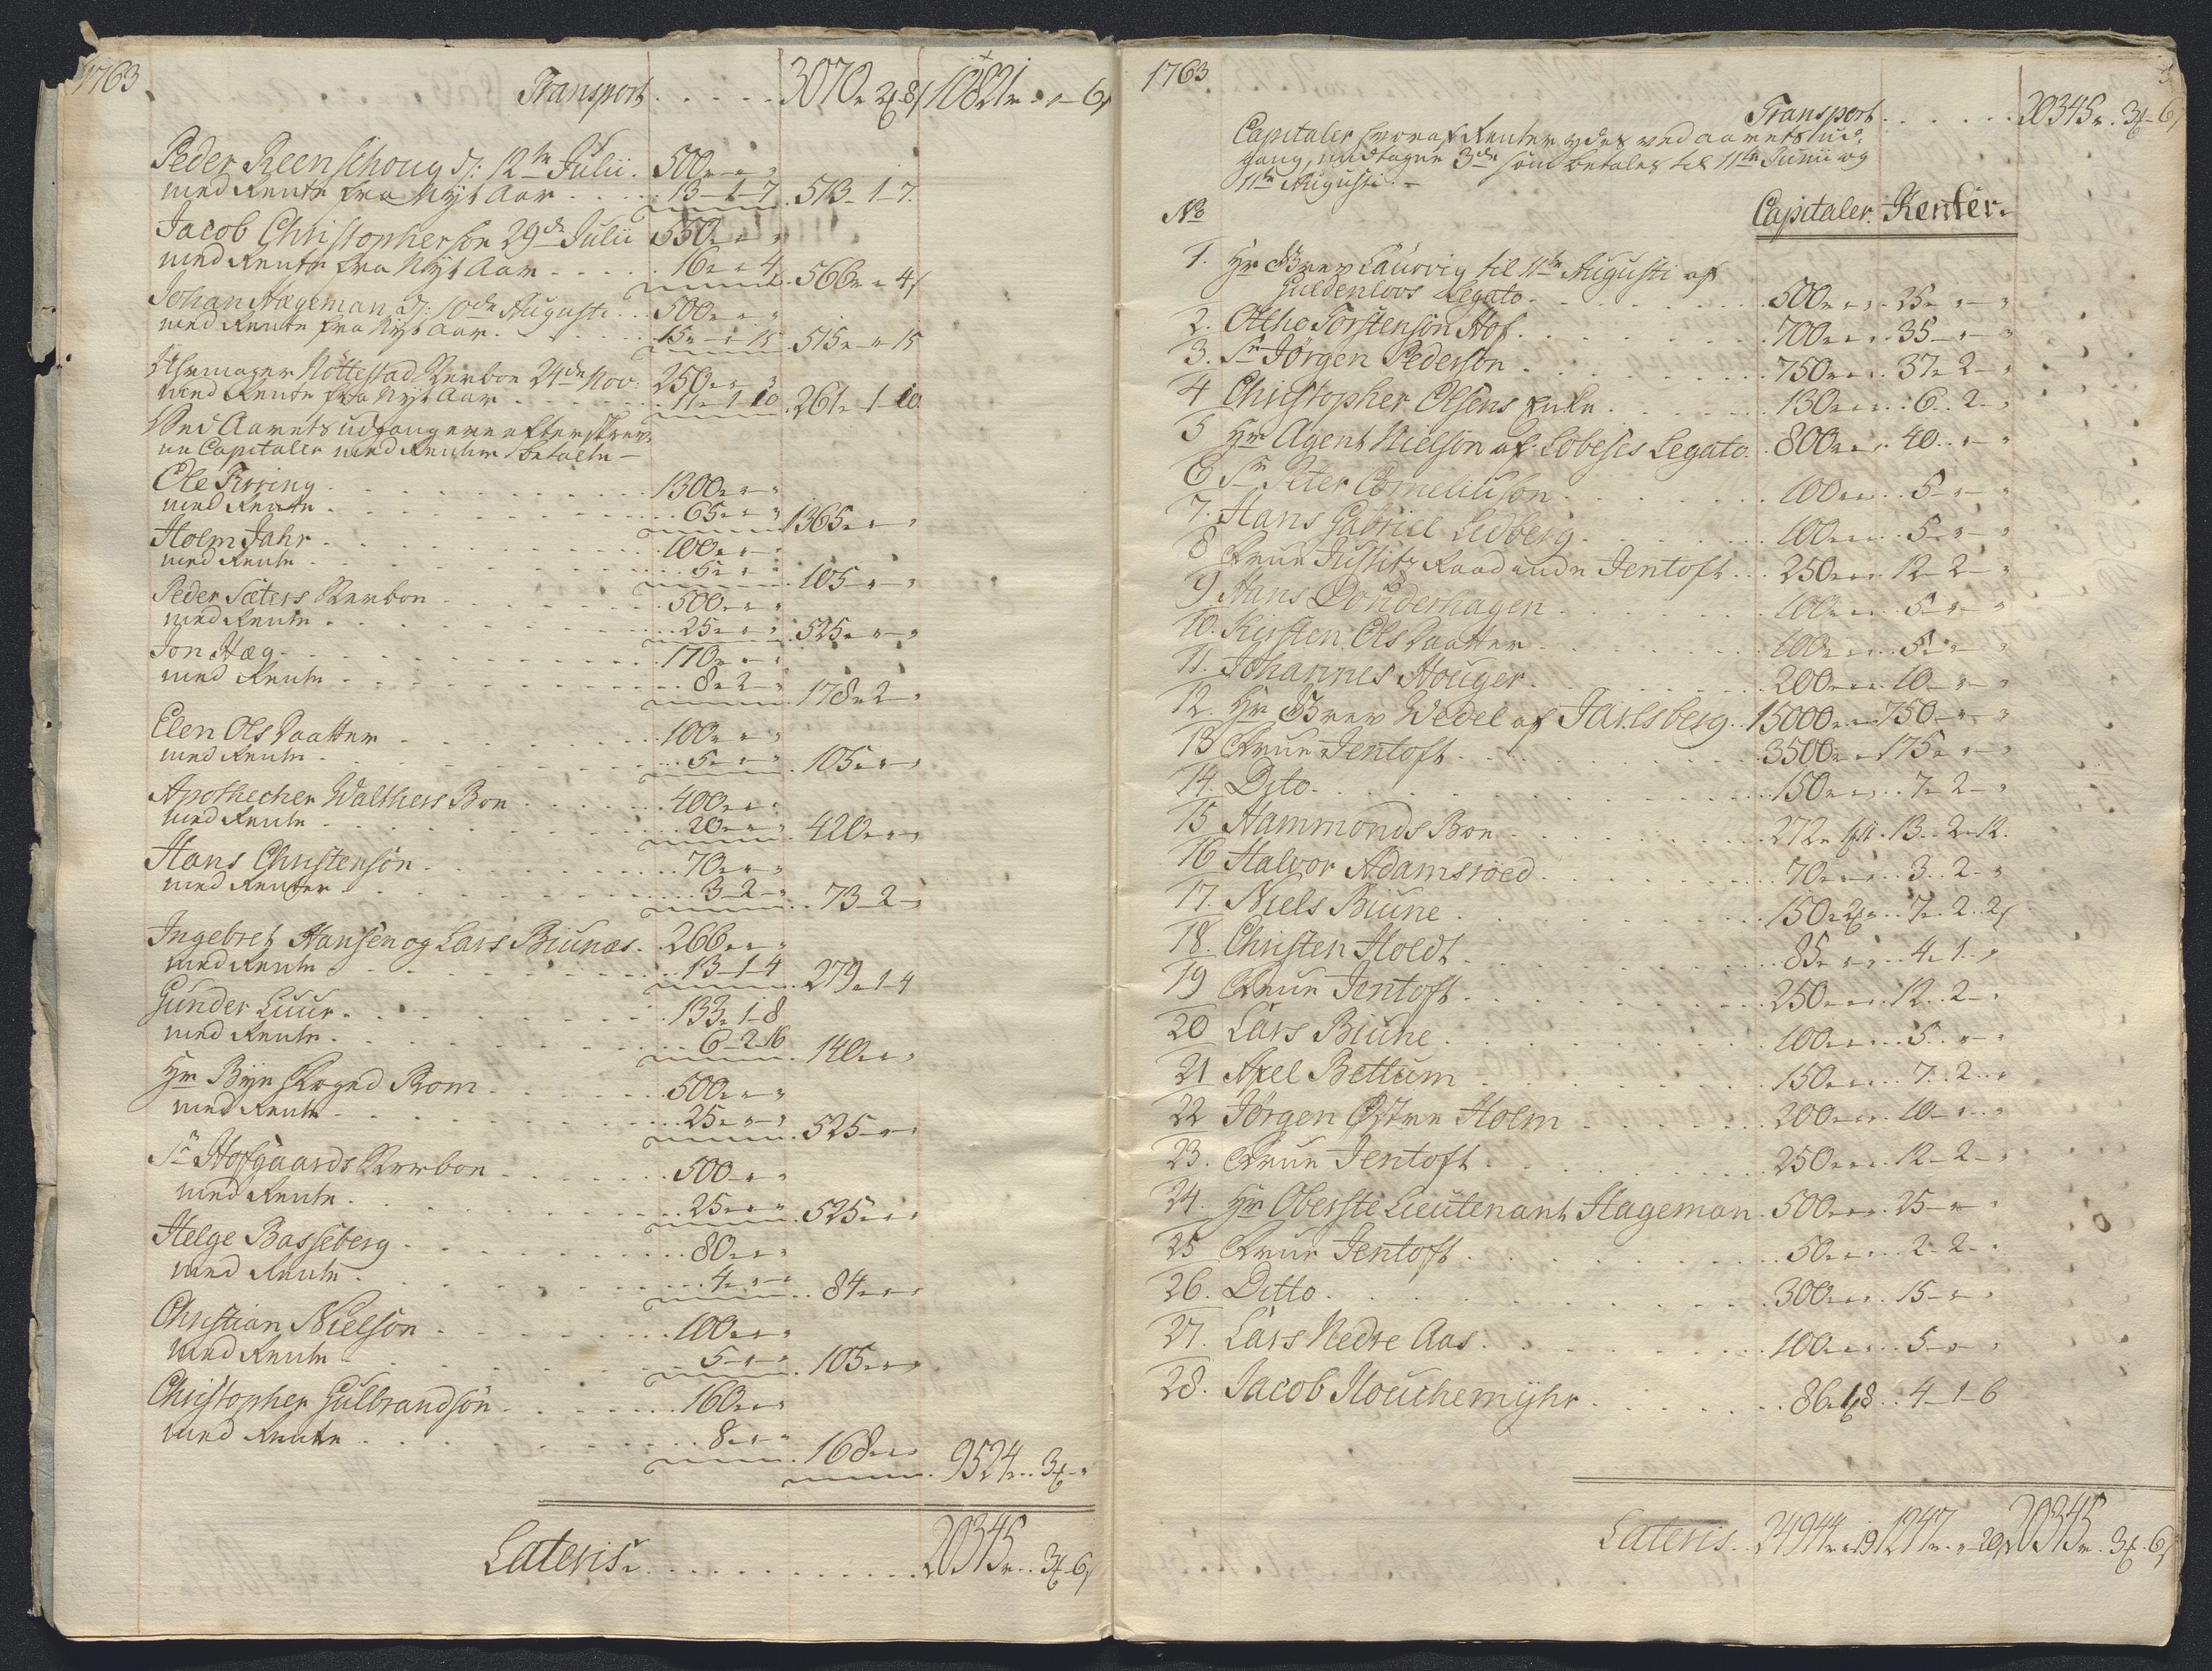 1763
Transport . . . . . 3070. 2 8 10821 " - 6
Peder Reenschoug d: 12te Julii . 500 " "
med Rente fra Nyt Aar . . . 13-1-7 513-1-7.
Jacob Christopherson 29de Julii 550 " "
med Rente fra Nyt Aar . . . . 16 " 4 566 " 4
Johan Hageman d: 10de Augusti . . 500 " "
med Rente fra Nyt Aar . . . . 15 " 15 515 " 15
Nöttestad Sterboe 24de Nov: 250 " "
med Rente fra Nyt Aar . . . . 11-1-10 261-1-10
Ved Aarets udgang ere efterskrev-
ne Capitaler med Renter betalte -
Ole Firring . . . . 1300 " "
med Rente . . . . 65 " " 1365 " "
Holm Jahr . . . . 100 " "
med Rente . . . . 5 " " 105 " "
Peder Sæters Sterboe . . . . 500 " "
med Rente . . . . 25 " " 525 " "
Jon Hæg . . . . 170 " "
med Rente . . . . 8-2-" 178-2-"
Elen Olsdaatter . . . . 100 " "
med Rente . . . . 5 " " 105 " "
Apothecher Walthers Boe . . . . 400 " "
med Rente . . . . 20 " " 420 " "
Hans Christensön . . . . 70 " "
med Renter . . . . 3-2-" 73-2-"
Ingebret Hansen og Lars Biunes . 266 " "
med Rente . . . . 13-1-4 279-1-4
Gunder Luur . . . . 133-1-8
med Rente . . . . 6-2-16 140 " "
Hr Bye Foged Rom . . . . 500 " "
med Rente . . . . 25 " " 525 " "
Sr Hofgaards Sterboe . . . . 500 " "
med Rente . . . . 25 " " 525 " "
Helge Basseberg . . . . 80 " "
med Rente . . . . 4 " " 84 " "
Christian Nielson . . . . 100 " "
med Rente . . . . 5 " " 105 " "
Christopher Gulbrandsön . . . . 160 " "
med Rente . . . . 8 " " 168 " " 9524 . 3 "
Lateris . . . . 20345 . 3 6
1763
Transport . . . . 20345 . 3 - 6
Capitaler hvoraf Renter ydes ved aarets ud-
gang, undtagen 3de som betales til 11te Junii og
11te Augusti . -
No Capitaler. Renter.
1. Hr Grev Laurvig til 11te Augusti af
Guldenloves Legato . . . . 500 " " 25 " "
2. Otho Torstenson Hof . . . . 700 " " 35 " "
3. Sr Jörgen Pederson . . . . 750 " " 37-2-"
4 Christopher Olsens Enke . . . . 130 " " 6-2-"
5 Hr Agent Nielson af Lobeses Legato . 800 " " 40 " "
6 Sr Peter Corneliuson . . . . 100 " " 5 " "
7. Hans Gabriel Lidberg . . . . 100 " " 5 " "
8 Frue Justitz Raadinde Jentoft . . 250 " " 12-2-"
9 Hans Donderhagen . . . . 100 " " 5 " "
10. Kirsten Olsdaatter . . . . 100 " " 5 " "
11. Johannes Houger . . . . 200 " " 10 " "
12. Hr Grev Wedel af Jarlsberg . 15000 " " 750 " "
13 Frue Jentoft . . . . 3500 " " 175 " "
14. Dito . . . . 150 " " 7-2-"
15 Hammonds Boe . . . . 272 13-2-12.
16 Halvor Adamsröed . . . . 70 " " 3-2-"
17. Niels Biune . . . . 150 2 " 7-2-2
18. Christen Holdt . . . . 85 " " 4-1-"
19 Frue Jentoft . . . . 250 " " 12-2-"
20 Lars Biune . . . . 100 " " 5 " "
21 Axel Bettum . . . . 150 " " 7-2-"
22 Jörgen Østre Holm . . . . 200 " " 10 " "
23. Frue Jentoft . . . . 250 " " 12-2-"
24. Hr Oberste Lieutenant Hageman . 500 " " 25 " "
25 Frue Jentoft . . . . 50 " " 2-2-"
26. Ditto . . . . 300 " " 15 " "
27. Lars Nedre Aas . . . . 100 " " 5 " "
28. Jacob Houchemyhr . . . . 86 1 8 4-1-6
Lateris . . 24944 " 19 1247 " 20 20345 . 3 6